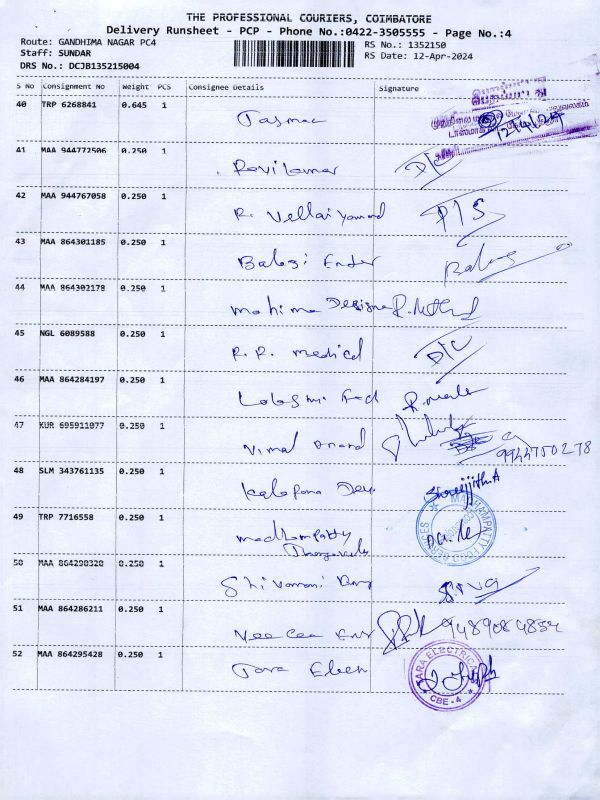 THE PROFESSIONAL COURIERS, COIMBATORE
Delivery Runsheet - PCP - Phone No.:0422-3505555 - Page No.:4
Route: GANDHIMA NAGAR PC4
RS No.: 1352150
Staff: SUNDAR
RS Date: 12-Apr-2024
DRS No.: DCJB135215004
S No Consignment No Weight PCS Consignee Details Signature
40 TRP 6268841 0.645 1 Tasmac 12/4/24
41 MAA 944772506 0.250 1 Ravi Kumar D/C
42 MAA 944767058 0.250 1 R. Vellaiyanand P/S
43 MAA 864301185 0.250 1 Balaji Ender
44 MAA 864302178 0.250 1 Mahima Designe
45 NGL 6089588 0.250 1 R. R. medical D/C
46 MAA 864284197 0.250 1
47 KUR 695911077 0.250 1 Vimal Anand 9944750278
48 SLM 343761135 0.250 1 Kalapana Devi Shreejjith.A
49 TRP 7716558 0.250 1 Madhampatty
Thangavelu
50 MAA 864290320 0.250 1 Siva
51 MAA 864286211 0.250 1 Vee Cee Ent 9489084854
52 MAA 864295428 0.250 1 Tara Elecn
TARA ELECTRICAL
CBE - 4